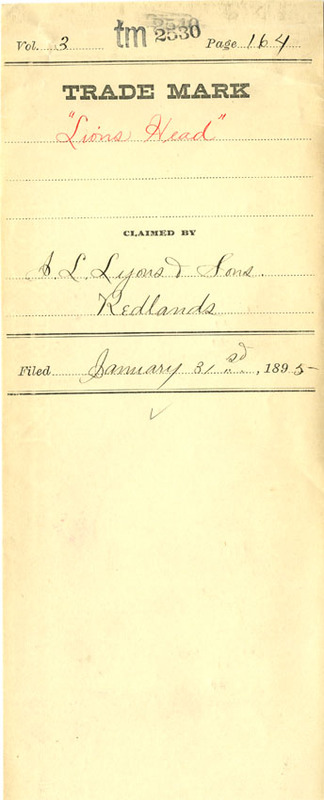 Vol. 3 tm 2530 Page 164
TRADE MARK
"Lions Head"
CLAIMED BY
A L. Lyons & Sons.
Redlands
Filed January 31 sd, 1895